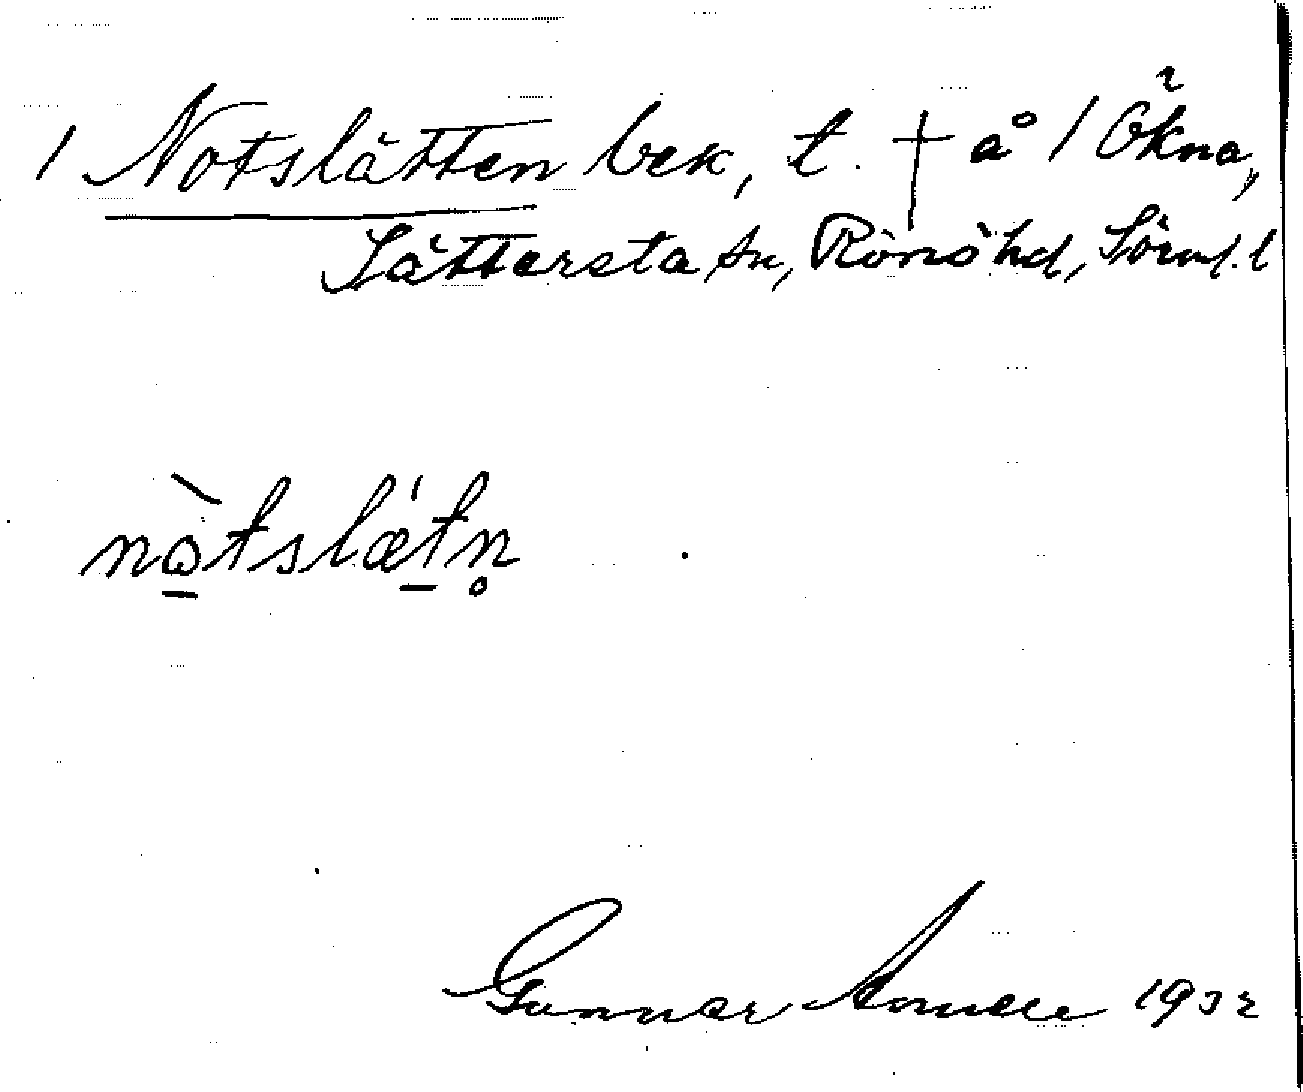 1 Notslätten bek, t. † å 1 Ökna,
Sättersta sn, Rönö hd, Sörml. l
nòtslætn̥
Gunnar 1932